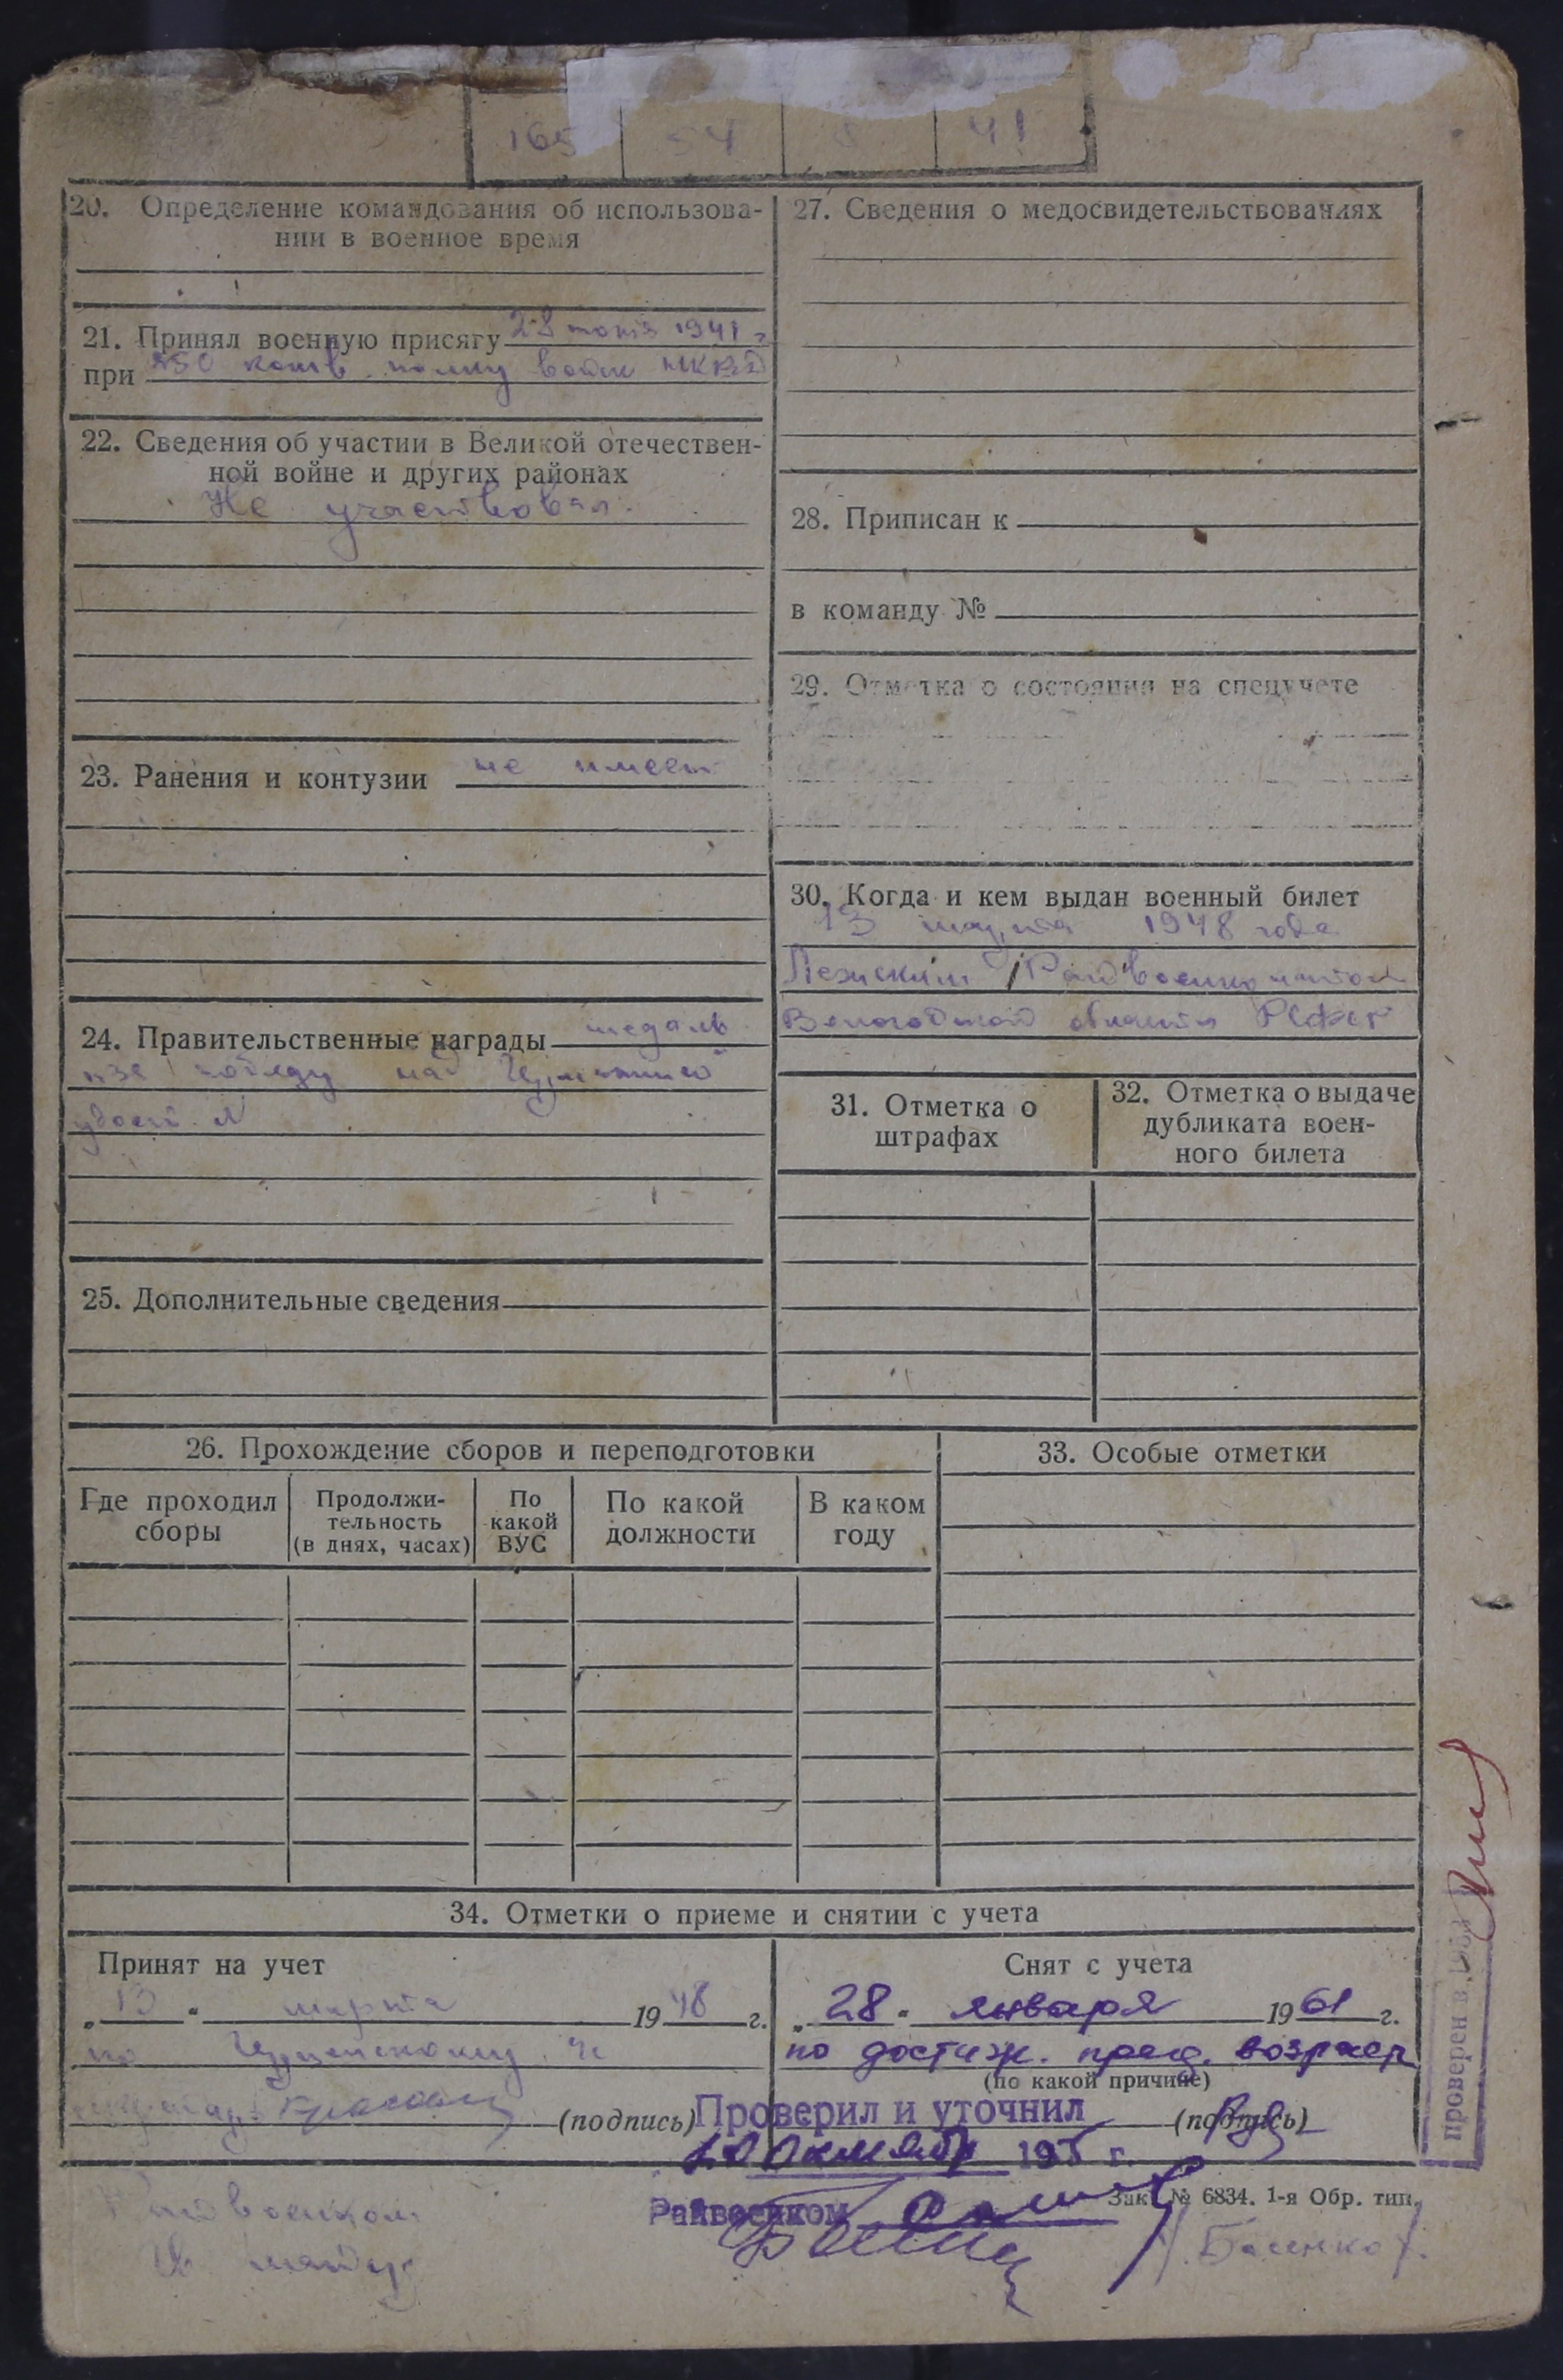 165 54 41
20. Определение командования об использова-
нии в военное время
21. Принял военную присягу 28 1941 г
при 250 конв. полку войск НКВД
22. Сведения об участии в Великой отечествен-
ной войне и других районах
Не участвовал.
23. Ранения и контузии не имеет
24. Правительственные награды медаль
"за победу над Германией"
удост. №
25. Дополнительные сведения
27. Сведения о медосвидетельствованиях
28. Приписан к
в команду №
29. Отметка о состоянии на спецучете
30. Когда и кем выдан военный билет
13 марта 1948 года
Лежским Райвоенкоматом
Вологодской области РСФСР
31. Отметка о
штрафах
32. Отметка о выдаче
дубликата воен-
ного билета
26. Прохождение сборов и переподготовки
Где проходил
сборы
Продолжи-
тельность
(в днях, часах)
По
какой
ВУС
По какой
должности
В каком
году
33. Особые отметки
34. Отметки о приеме и снятии с учета
Принят на учет
„13" марта 1948 г.
по
(подпись)
Снят с учета
„28" января 1961 г.
по достиж. пред. возраст
(по какой причине)
(подпись)
Проверил и уточнил
10 октября 195 г.
Райвоенком
Зак. № 6834. 1-я Обр. тип.
Райвоенком
/Басенко/.
проверен в